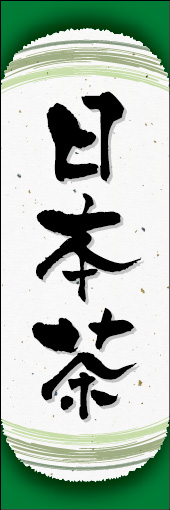 日本茶